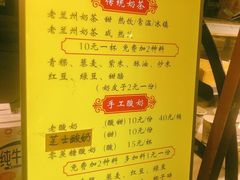 传统奶茶
老兰州奶茶 甜 热饮/常温/冰镇
老兰州奶茶 咸 热
10元一杯 免费加2种料
青稞、荞麦、紫米、
红豆、绿豆、甜醅
(奶皮子2元一份)
手工酸奶
老酸奶 (甜) 10元/份 40元/桶
芝士酸奶 (甜) 10元/份
零蔗糖酸奶 (酸) 15元/杯
免费加2种料 多加料1元一份
青稞、荞麦、红豆、绿豆